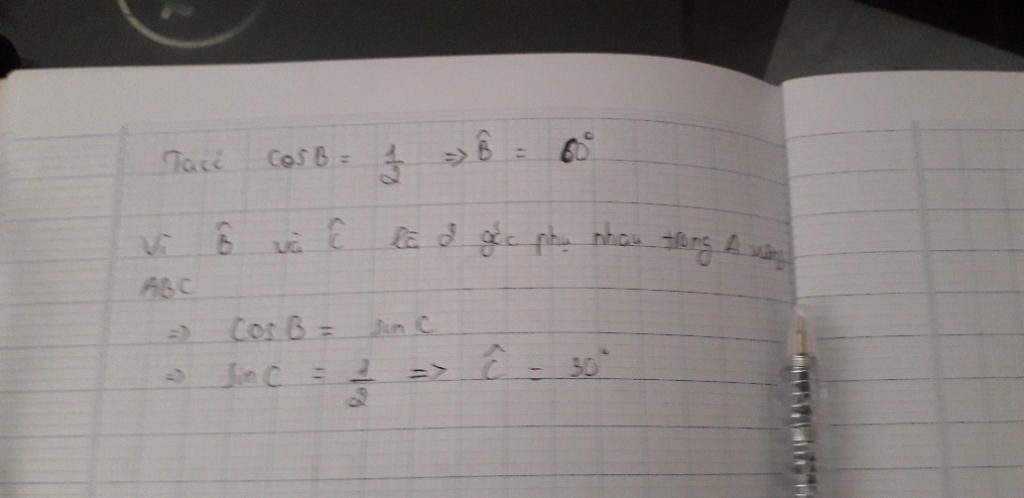 Ta có cosB = 1/2 => B̂ = 60°
Vì B̂ và Ĉ là 2 góc phụ nhau trong Δ vuông
ABC
=> cosB = sinC
=> sinC = 1/2 => Ĉ = 30°